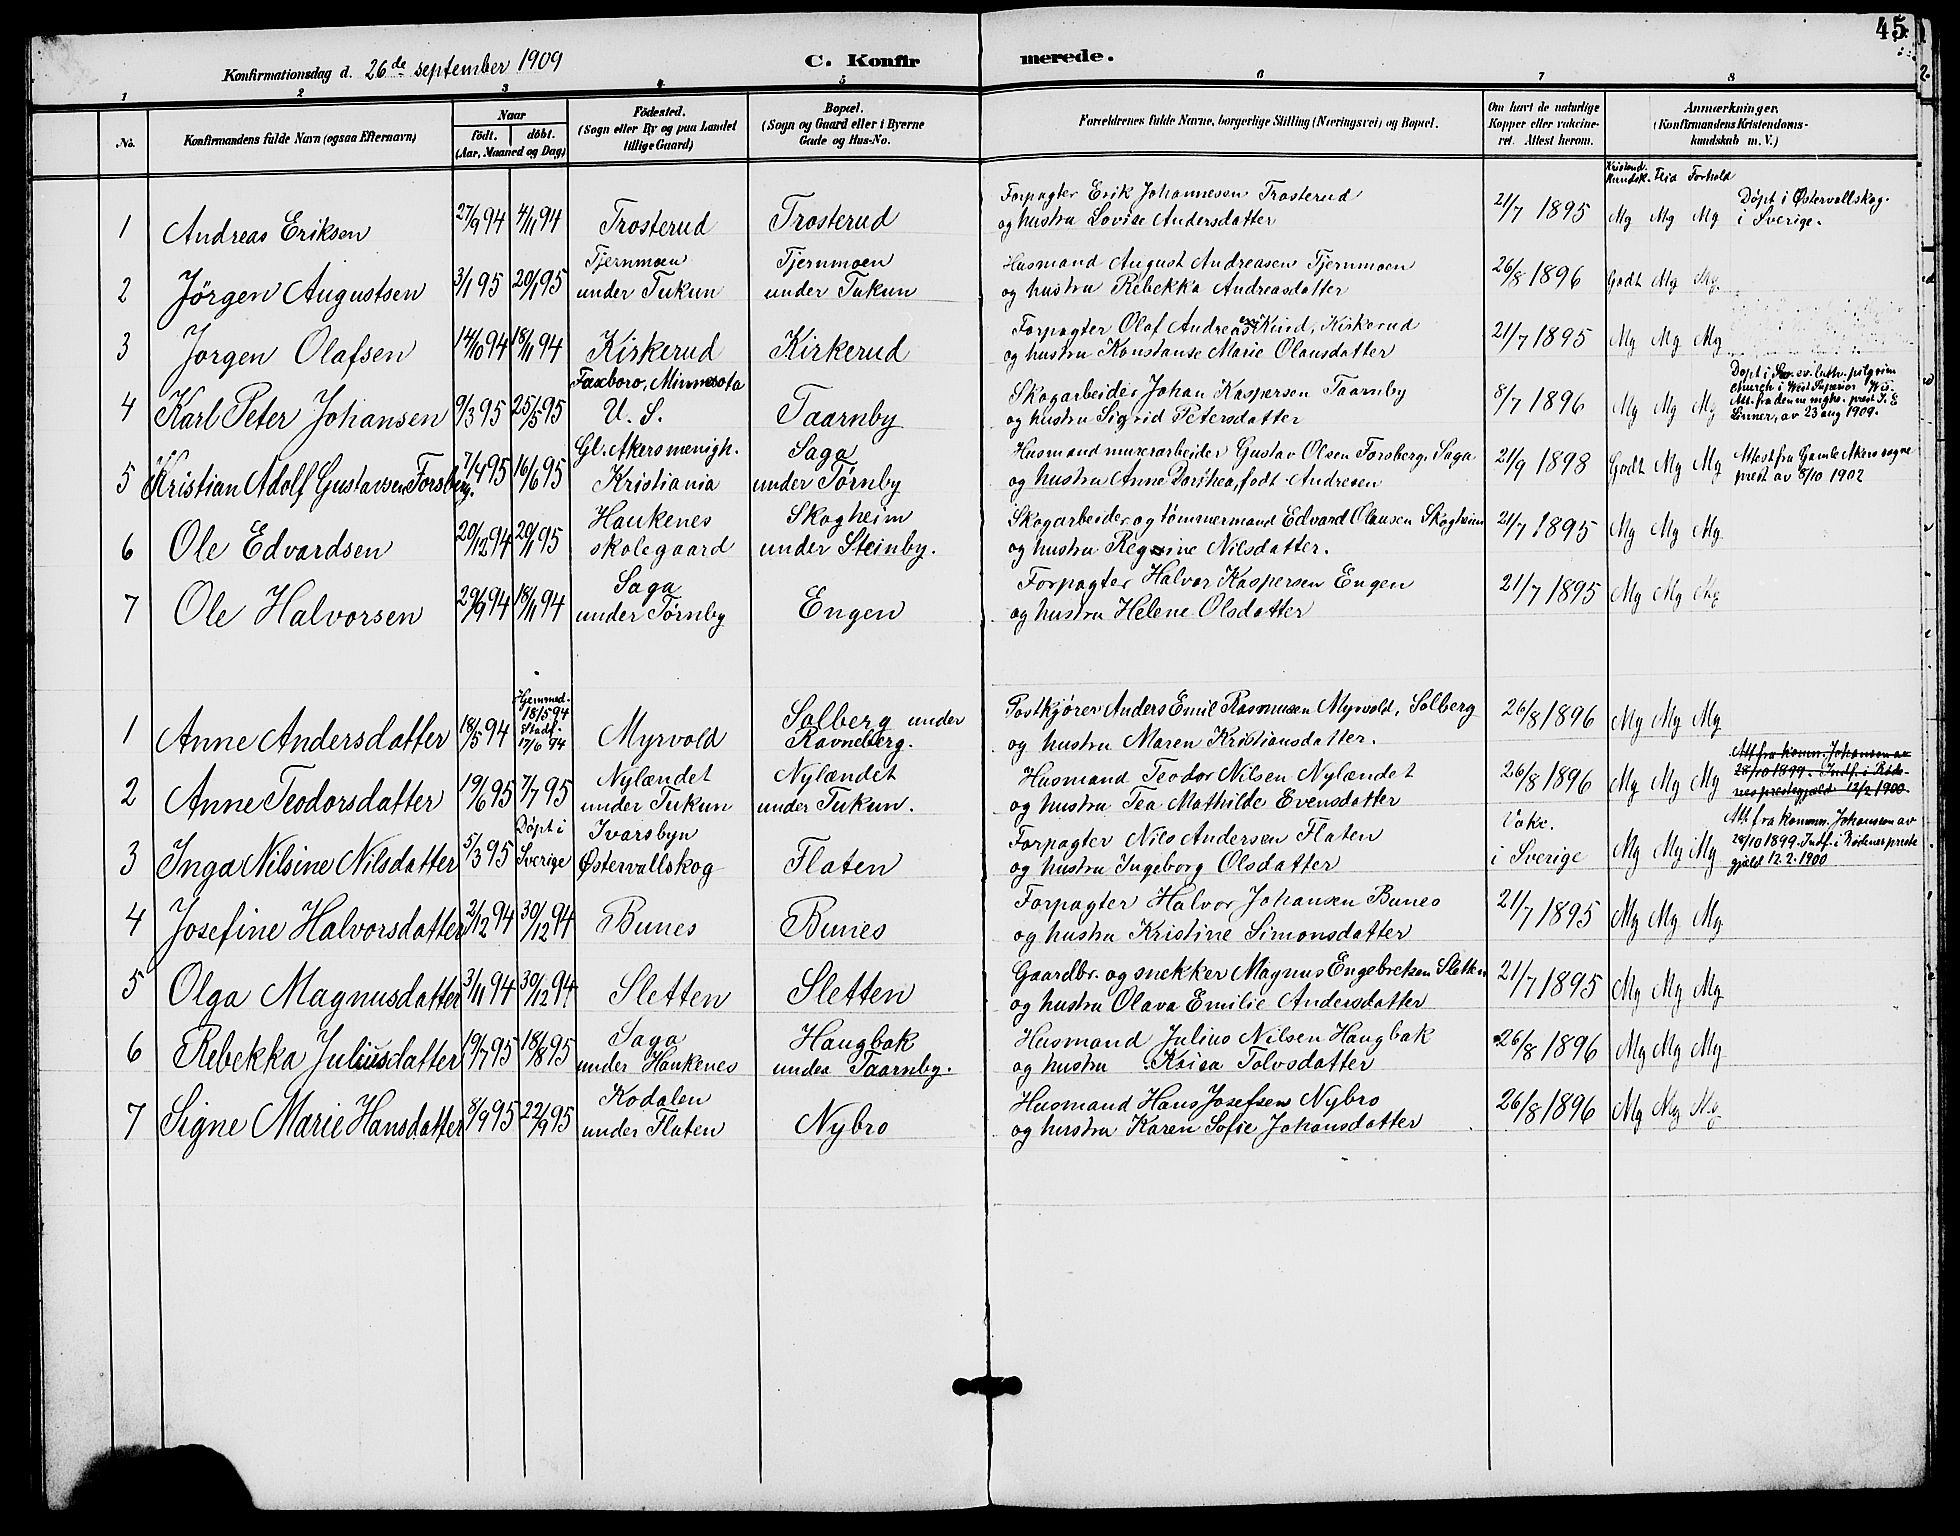 45
Konfirmationsdag d. 26de september 1909
C. Konfirmerede.
1 2 3 4 5 6 7 8
No.
Konfirmandens fulde Navn (ogsaa Efternavn)
Naar
födt. döbt.
(Aar, Maaned og Dag)
Födested.
(Sogn eller By og paa Landet
tillige Gaard)
Bopæl.
(Sogn og Gaard eller i Byerne
Gade og Hus-No.
Forældrenes fulde Navne, borgerlige Stilling (Næringsvei) og Bopæl.
Om havt de naturlige
Kopper eller vakcine-
ret. Attest herom.
Anmærkninger,
(Konfirmandens Kristendoms-
kundskab m. V.)
Kristend.
kundsk. Flid Forhold
1 Andreas Eriksen 27/9 94 4/11 94 Trosterud Trosterud
Forpagter Erik Johannesen Trosterud
og hustru Lovise Andersdatter
21/7 1895 Mg Mg Mg
Döpt i Østervallskog
i Sverige.
2 Jörgen Augustsen 3/1 95 20/1 95
Tjernmoen
under Tukun
Tjernmoen
under Tukun
Husmand August Andreasen Tjernmoen
og hustru Rebekka Andreasdatter
26/8 1896 Godt Mg Mg
3 Jörgen Olafsen 14/10 94 18/11 94 Kirkerud Kirkerud
Forpagter Olaf Andreas Kirkerud
og hustru Konstanse Marie Olausdatter
21/7 1895 Mg Mg Mg
4 Karl Peter Johansen 9/3 95 25/5 95
Faxboro, Minnesota
U. S.
Taarnby
Skogarbeider Johan Kaspersen Taarnby
og hustru Sigrid Petersdatter
8/7 1896 Mg Mg Mg
Döpt i ev. luth. pilgrim
church i West Superior Wis.
Att. fra denne migh. prest J. E
av 23 aug 1909.
5 Kristian Adolf Gustavsen Forsberg. 7/4 95 16/6 95
Gl. Akers menigh.
Kristiania
Saga
under Tørnby
Husmand murerarbeider Gustav Olsen Forsberg, Saga
og hustru Anne Dorthea, født Andresen
21/9 1898 Godt Mg Mg
Attest fra Gamle Akers sogne
prest av 8/10 1902
6 Ole Edvardsen 20/12 94 20/1 95
Haukenes
skolegaard
Skogheim
under Steinby.
Skogarbeider og tømmermand Edvard Olausen Skogheim
og hustru Regine Nilsdatter.
21/7 1895 Mg Mg Mg
7 Ole Halvorsen 29/9 94 18/11 94
Saga
under Tørnby
Engen
Forpagter Halvor Kaspersen Engen
og hustru Helene Olsdatter
21/7 1895 Mg Mg Mg
1 Anne Andersdatter 18/5 94
Hjemmed.
18/5 94
Stadf.
17/6 94
Myrvold
Solberg under
Ravneberg.
Postkjører Anders Emil Rasmussen Myrvold, Solberg
og hustru Maren Kristiansdatter.
26/8 1896 Mg Mg Mg
2 Anne Teodorsdatter 19/6 95 7/7 95
Nylændet
under Tukun
Nylændet
under Tukun.
Husmand Teodor Nilsen Nylændet
og hustru Tea Mathilde Evensdatter
26/8 1896 Mg Mg Mg
Att fra komm. Johansen av
28/10 1899. Indf. i Röde-
nes prestegjæld 12/2 1900
3 Inga Nilsine Nilsdatter 5/3 95
Döpt i
Sverige
Ivarsbyn
Østervallskog
Flaten
Forpagter Nils Andersen Flaten
og hustru Ingeborg Olsdatter
Vakc.
i Sverige
Mg Mg Mg
Att fra komm. Johansen av
28/10 1899. Indf. i Rödenes preste
gjæld 12.2.1900
4 Josefine Halvorsdatter 2/12 94 30/12 94 Bunes Bunes
Forpagter Halvor Johansen Bunes
og hustru Kristine Simonsdatter
21/7 1895 Mg Mg Mg
5 Olga Magnusdatter 3/11 94 30/12 94 Sletten Sletten
Gaardbr. og snekker Magnus Engebretsen Sletten
og hustru Olava Emilie Andersdatter
21/7 1895 Mg Mg Mg
6 Rebekka Juliusdatter 19/7 95 18/8 95
Saga
under Haukenes
Haugbak
under Taarnby.
Husmand Julius Nilsen Haugbak
og hustru Krisa Tolvsdatter
26/8 1896 Mg Mg Mg
7 Signe Marie Hansdatter 8/9 95 22/9 95
Kodalen
under Flaten
Nybro
Husmand Hans Josefsen Nybro
og hustru Karen Sofie Johansdatter
26/8 1896 Mg Mg Mg